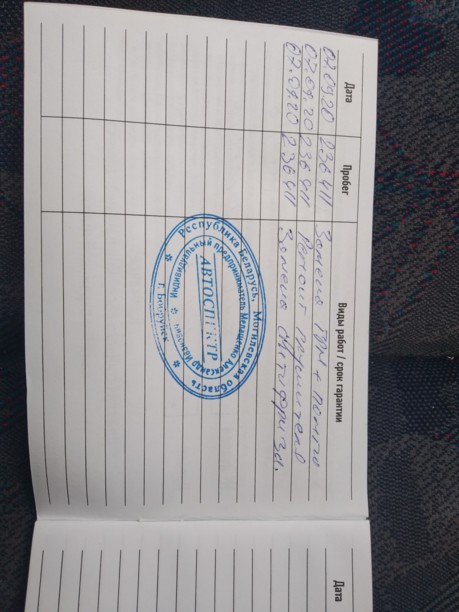 Дата Пробег Виды работ / срок гарантии
07.09.20 236 411 Замена ГРМ + помпы
07.09.20 236 411 Ремонт глушителя
07.09.20 236 411 Замена Антифриза.
Республика Беларусь, Могилевская область
Индивидуальный предприниматель Мелащенко Александр
АВТОСПЕКТР
г. Бобруйск
Дата